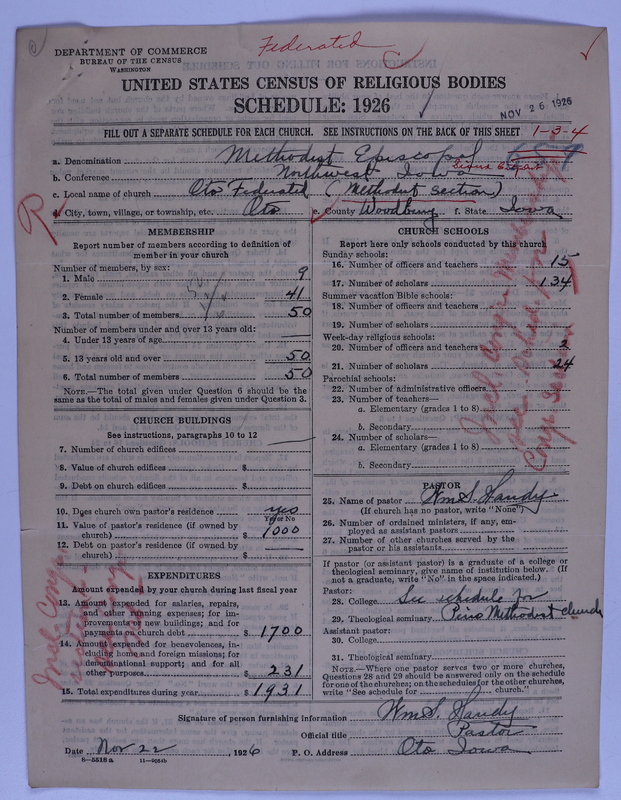 Federated
DEPARTMENT OF COMMERCE
BUREAU OF THE CENSUS
WASHINGTON
UNITED STATES CENSUS OF RELIGIOUS BODIES
SCHEDULE: 1926
NOV 26 1926
FILL OUT A SEPARATE SCHEDULE FOR EACH CHURCH. SEE INSTRUCTIONS ON THE BACK OF THIS SHEET 1-3-4
a. Denomination Methodist Episcopal
b. Conference Northwest Iowa
c. Local name of church Oto Federated (Methodist Section)
d. City, town, village, or township, etc. Oto e. County Woodbury f. State Iowa
MEMBERSHIP
Report number of members according to definition of
member in your church
Number of members, by sex:
1. Male 9
2. Female 41
3. Total number of members 50
Number of members under and over 13 years old:
4. Under 13 years of age
5. 13 years old and over 50
6. Total number of members 50
NOTE.—The total given under Question 6 should be the
same as the totals of males and females given under Question 3.
CHURCH BUILDINGS
See instructions, paragraphs 10 to 12
7. Number of church edifices
8. Value of church edifices $
9. Debt on church edifices $
10. Does church own pastor's residence yes
Yes or No
11. Value of pastor's residence (if owned by
church) $ 1000
12. Debt on pastor's residence (if owned by
church) $
EXPENDITURES
Amount expended by your church during last fiscal year
13. Amount expended for salaries, repairs,
and other running expenses; for im-
provements or new buildings; and for
payments on church debt $ 1700
14. Amount expended for benevolences, in-
cluding home and foreign missions; for
denominational support; and for all
other purposes $ 231
15. Total expenditures during year $ 1931
CHURCH SCHOOLS
Report here only schools conducted by this church
Sunday schools:
16. Number of officers and teachers 15
17. Number of scholars 134
Summer vacation Bible schools:
18. Number of officers and teachers
19. Number of scholars
Week-day religious schools:
20. Number of officers and teachers 2
21. Number of scholars 24
Parochial schools:
22. Number of administrative officers
23. Number of teachers—
a. Elementary (grades 1 to 8)
b. Secondary
24. Number of scholars—
a. Elementary (grades 1 to 8)
b. Secondary
PASTOR
25. Name of pastor Wm S. Handy
(If church has no pastor, write "None")
26. Number of ordained ministers, if any, em-
ployed as assistant pastors
27. Number of other churches served by the
pastor or his assistants
If pastor (or assistant pastor) is a graduate of a college or
theological seminary, give name of institution below. (If
not a graduate, write "No" in the space indicated.)
Pastor:
28. College See schedule for
29. Theological seminary Methodist church
Assistant pastor:
30. College
31. Theological seminary
NOTE.—Where one pastor serves two or more churches,
Questions 28 and 29 should be answered only on the schedule
for one of the churches; on the schedules for the other churches,
write "See schedule for church."
Signature of person furnishing information Wm S. Handy
Official title Pastor
Date Nov 22, 1926 P. O. Address Oto Iowa
8-5518a 11-9064b